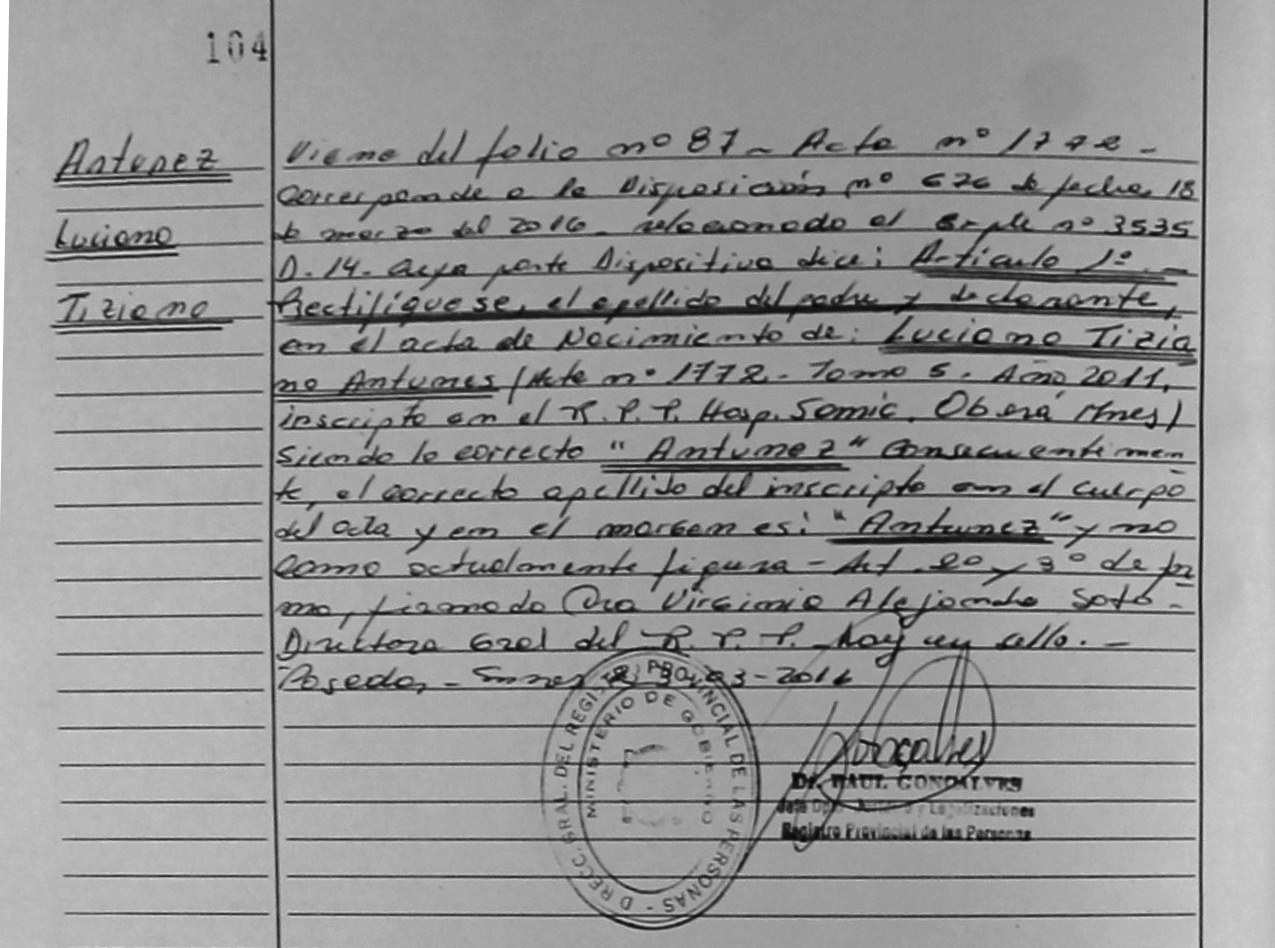 104
Antunez
Luciano
Tiziano
Viene del folio nº 87 - Acta nº 1772 -
Corresponde a la Disposición nº 626 de fecha, 18
de marzo del 2016 - relacionado el Expte nº 3535
D. 14. Cuya parte Dispositiva dice: Artículo 1º. -
Rectifíquese, el apellido del padre y declarante,
en el acta de Nacimiento de: Luciano Tizia
no Antunes (Acta nº 1772 - Tomo 5. Año 2011,
inscripto en el R. P. P. Hosp. Samic. Oberá Mnes)
siendo lo correcto "Antunez" Consecuentemen
te, el correcto apellido del inscripto en el cuerpo
del acta y en el margen es: "Antunez" y no
como actualmente figura - Art. 2º y 3º de
mo, firmado Dra Virginia Alejandra Soto -
Directora Gral del R. P. P. hay un sello. -
Posadas, - 03-2016
DIRECC. GRAL. DEL REGISTRO PROVINCIAL DE LAS PERSONAS -
MINISTERIO DE GOBIERNO
Gonçalves
Dr. RAUL GONCALVES
Jefe Dpto. y Legalizaciones
Registro Provincial de las Personas